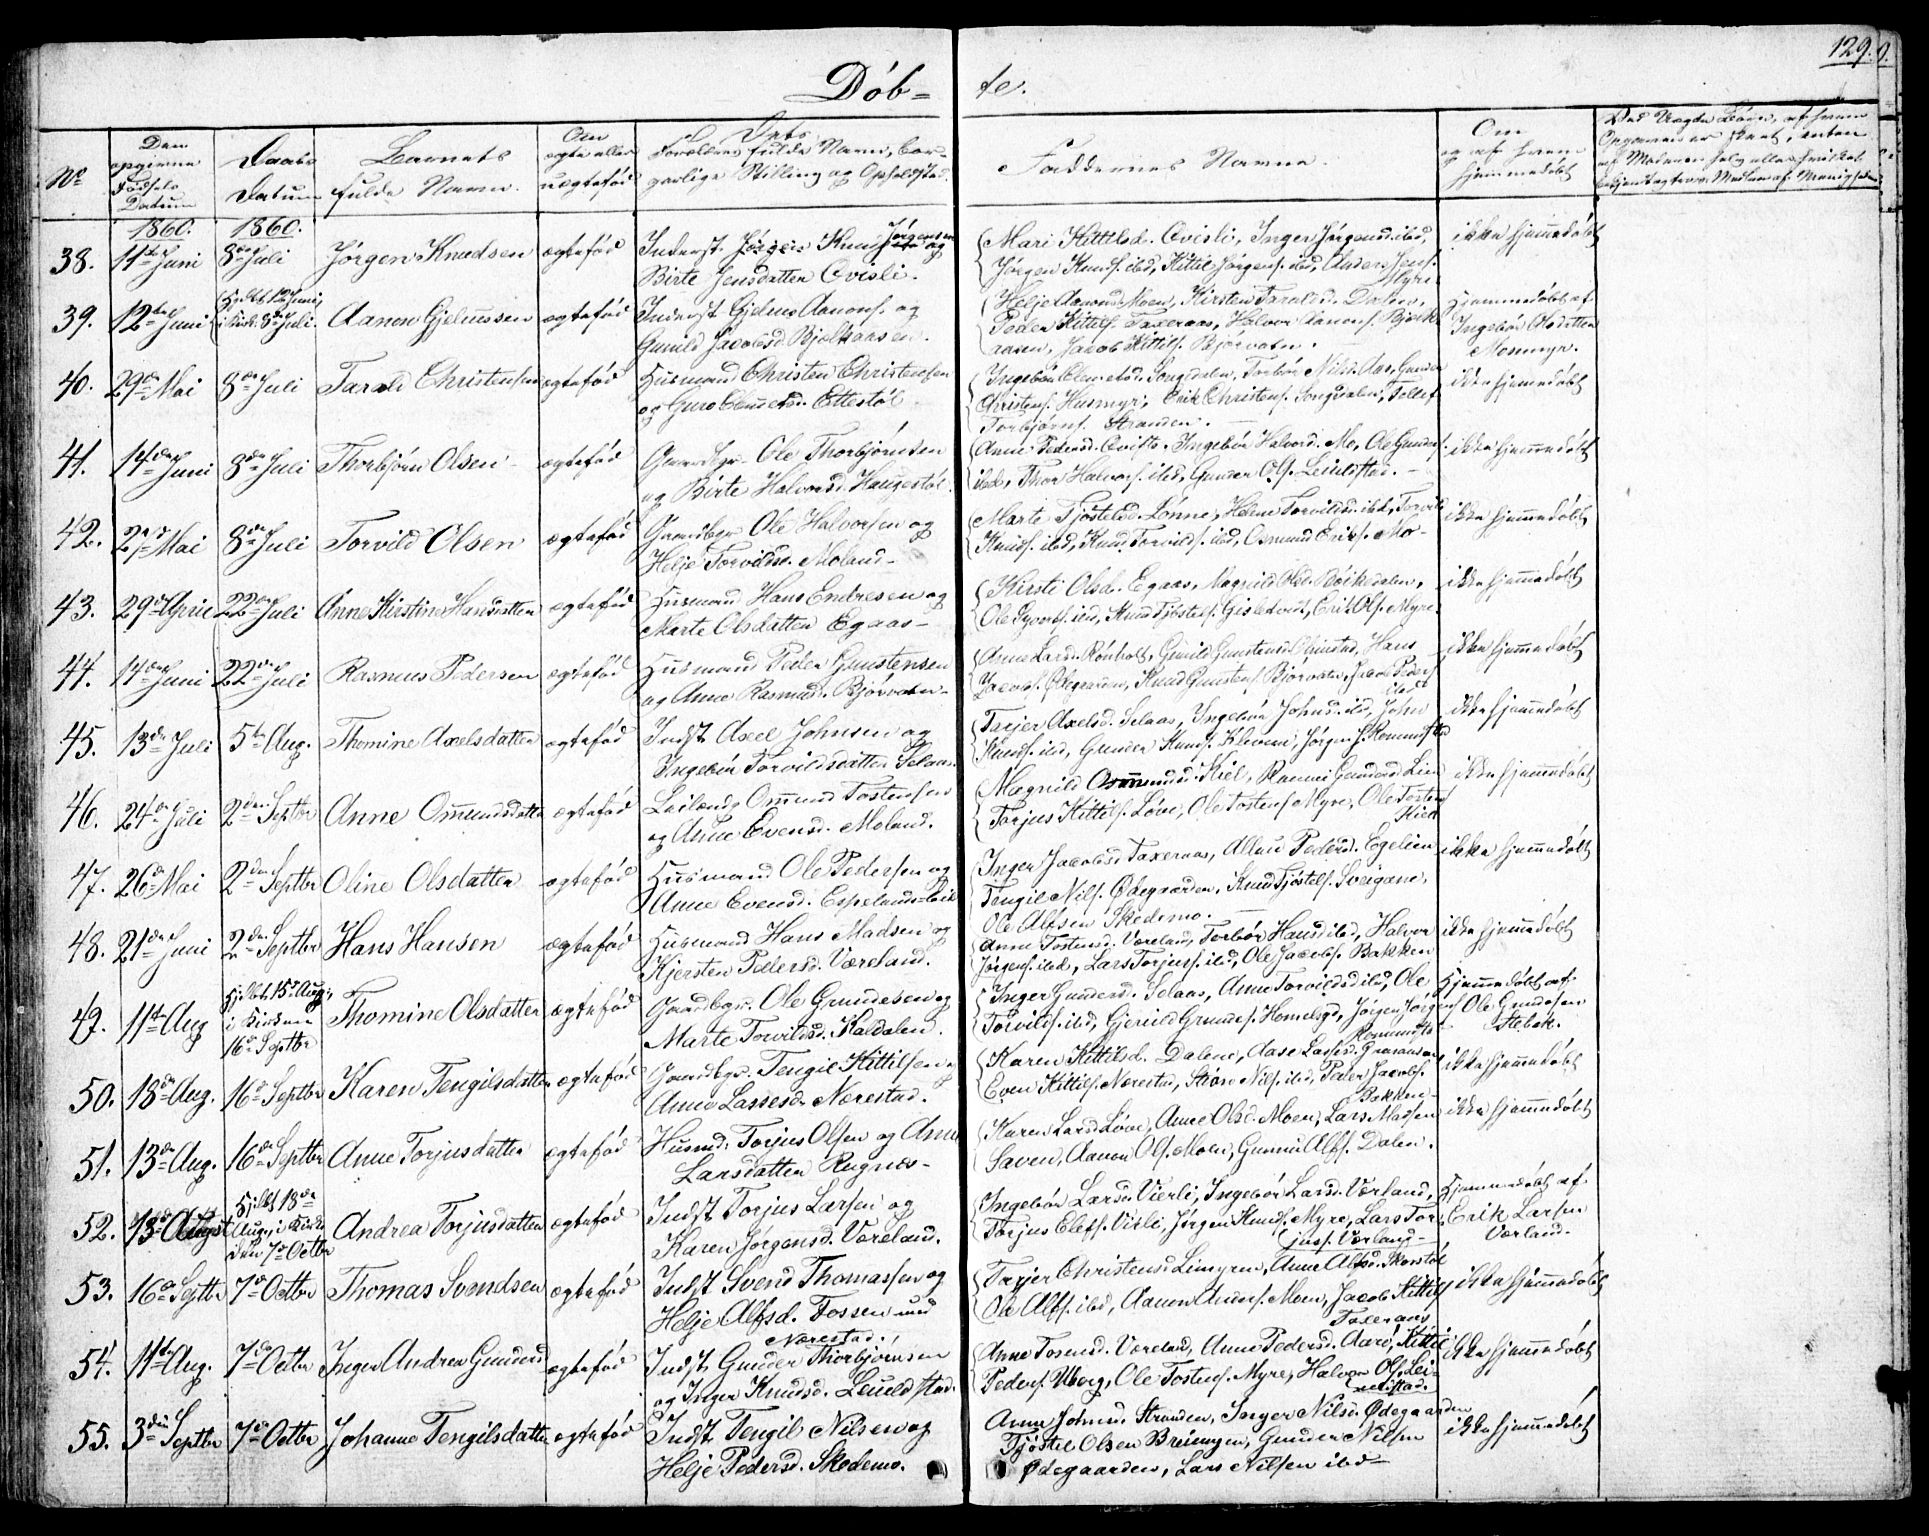 129.
Døb- te.
No
Den opgivne Fødsels Datum
Daabs Datum
Barnets fulde Navn.
Om ægte eller uægtefød
Dets Forældres fulde Navn, borgerlige Stilling og Opholdssted.
Faddernes Navne.
Om og af hvem hjemmedøbt
1860. 1860.
38. 11te Juni 8de Juli Jørgen Knudsen ægtefød Inderst Knud Jørgensen og
Birte Jensdatter Ovisli.
Mari Kittilsd. Ovisli, Inger Jørgensd. ibd,
Jørgen Knuds. ibd, Kittil Jørgens. ibd, Anders Jens.
Myre
ikke hjemmedøbt
39. 12te Juni Hjdbt 12 Juni, i Kirk. 8de Juli. Aanon Gjelmssen ægtefød Inderst Gjelm Aanons. og
Gunild Jacobsd Bjelkaasen.
Helje Aanonsd. Moen, Kirsten Taraldsd. Dalen,
Peder Kittils. Taxeraas, Halvor Aanons. Bjelk-
aasen, Jacob Kittils. Bjorvatn.
Hjemmedøbt af
Ingebør Olsdatter
Mosmyr.
40. 29de Mai 8de Juli Tarald Christensen ægtefød Husmand Christen Christensen
og Guro Clemetsd. Ettestøl
Ingebør Clemetsd. Songedalen, Torbør Nilsd. Aas, Gunder
Christens. Husmyr, Erik Christens. Songdalen, Tellef
Torbjørns. Stranden.
ikke hjemmedøbt
41. 14de Juni 8de Juli Thorbjørn Olsen ægtefød Gaardbgr. Ole Thorbjørnsen
og Birte Halvorsd. Haugestøl.
Anne Pedersd. Ingebør Halvorsd. Mo, Ole Gunders.
ibd, Thor Halvors. ibd, Gunder O.G. Leiulfstad.
ikke hjemmedøbt
42. 27de Mai 8de Juli Torvild Olsen ægtefød Gaardbgr Ole Halvorsen og
Helje Torvildsd. Moland
Marte Tjøstelsd. Lønne, Helene Torvildsd. ibd, Torvild
Knuds. ibd, Knud Torvilds. ibd, Osmund Eriks. Mo
ikke hjemmedøbt
43. 29de April 22de Juli Anne Kirstine Hansdatter ægtefød Husmand Hans Endresen og
Marte Olsdatter Egaas
Kirsti Olsd. Egaas, Magnild Olsd. Bøikedalen,
Ole Gjervs. ibd, Knud Tjøstels. Gisletved, Erik Ols. Myre
ikke hjemmedøbt
44. 14de Juni 22de Juli Rasmus Pedersen ægtefød Husmand Peder Gunstensen
og Anne Rasmusd. Bjorvatn
Anne Larsd. Rønholt, Gunild Gunstensd. Olimstad, Hans
Jacobs. Ødegaarden, Knud Gunstens. Bjorvatn, Jacob Peders.
ibd
ikke hjemmedøbt
45. 13de Juli 5te Aug. Thomine Axelsdatter ægtefød Indst. Axel Johnsen og
Ingebør Torvildsdatter Selaas.
Tarjer Axelsd. Selaas, Ingebør Johnsd. ibd, John
Knuds. ibd, Gunder Knuds. Kleveen, Jørgen J. Rommundsta
ikke hjemmedøbt
46. 24de Juli 2den Septbr Anne Omundsdatter ægtefød Leilendg Omund Tostensen
og Anne Evensd. Moland.
Magnild Osmundsd. Kiel, Rannei Gundersd. Lien
Torjus Kittils. Løve, Ole Tostens. Myre, Ole Tostens.
Kiel
ikke hjemmedøbt
47. 26de Mai 2den Septbr Oline Olsdatter ægtefød Husmand Ole Pedersen og
Anne Evensd. Espelands
Inger Jacobsd Taxeraas, Pedersd. Egelien
Tengil Nils. Ødegaarden, Knud Tjøstels. Sveigane,
Ole Alfsen Skedemo.
ikke hjemmedøbt
48. 21de Juni 2den Septbr Hans Hansen ægtefød Husmand Hans Madsen og
Kjersten Pedersd. Væreland.
Anne Tostensd. Væreland, Torbør Hansd. ibd, Halvor
Jørgens. ibd, Lars Torjuss. ibd, Ole Jacobs. Bakken
ikke hjemmedøbt
49. 11te Aug Hjdbt. 15de Aug., i Kirken 16de Septbr Thomine Olsdatter ægtefød Gaardbgr. Ole Grundesen og
Marte Torvildsd. Kaldalen.
Inger Gundersd. Selaas, Anne Torvildsd. ibd, Ole
Torvilds. ibd, Gjeruld Grundes. Hommelsgd, Jørgen Jørgens.
Rommundsta
Hjemmedøbt af
Ole Grundesen
Stebek.
50. 18de Aug. 16de Septbr Karen Tengilsdatter ægtefød Gaardbgr. Tengil Kittilsen og
Anne Lassesd. Nærestad.
Karen Kittilsd. Dalene, Aase Lassesd.
Even Kittils. Nærestad, Nils. ibd, Peder Jacobs.
Bakken
ikke hjemmedøbt
51. 13de Aug. 16de Septbr Anne Torjusdatter ægtefød Husmd. Torjus Olsen og Anne
Larsdatter Rugnæs
Karen Larsd Løve, Anne Olsd. Moen, Lars Madsen
Saven, Aanon Ols. Moen, Gunnu Alfs. Dalen.
ikke hjemmedøbt
52. 13de August Hjdbt 18de Aug., i Kirke den 7de Octbr Andrea Torjusdatter ægtefød Indst Torjus Larsen og
Karen Jørgensd. Væreland.
Ingebør Larsd. Vierli, Ingebør Larsd. Værland,
Torjus Elefs. Visli, Jørgen Knuds. Myre, Lars Tor-
juss. Værland
Hjemmedøbt af
Erik Larsen
Værland.
53. 16de Septbr 7de Octbr Thomas Svendsen ægtefød Indst Svend Thomassen og
Helje Alfsd. Fossen
Nærestad.
Tarjer Christensd Limyren, Anne Alfsd. Skorstøl
Ole Alfs. ibd, Aanon Anders. Moen, Jacob Kittils.
Taxeraas
ikke hjemmedøbt
54. 11te Aug. 7de Octbr Inger Andrea Gundersd ægtefød Indst Gunder Thorbjørnsen
og Inger Knudsd. Leiulfstad.
Anne Tosensd. Væreland, Anne Pedersd. Aarø, Kittil
Peders. Uberg, Ole Tostens. Myre, Halvor Ols. Lei-
ulfstad.
ikke hjemmedøbt
55. 3die Septbr 7de Octbr Johanne Tengilsdatter ægtefød Indst Tengil Nilsen og
Helje Pedersd. Skedemo.
Anne Johnsd. Stranden, Inger Nilsd. Ødegaarden
Tjøstel Olsen Breimyen, Gunder Nilsen
Ødegaarden, Lars Nilsen ibd
ikke hjemmedøbt